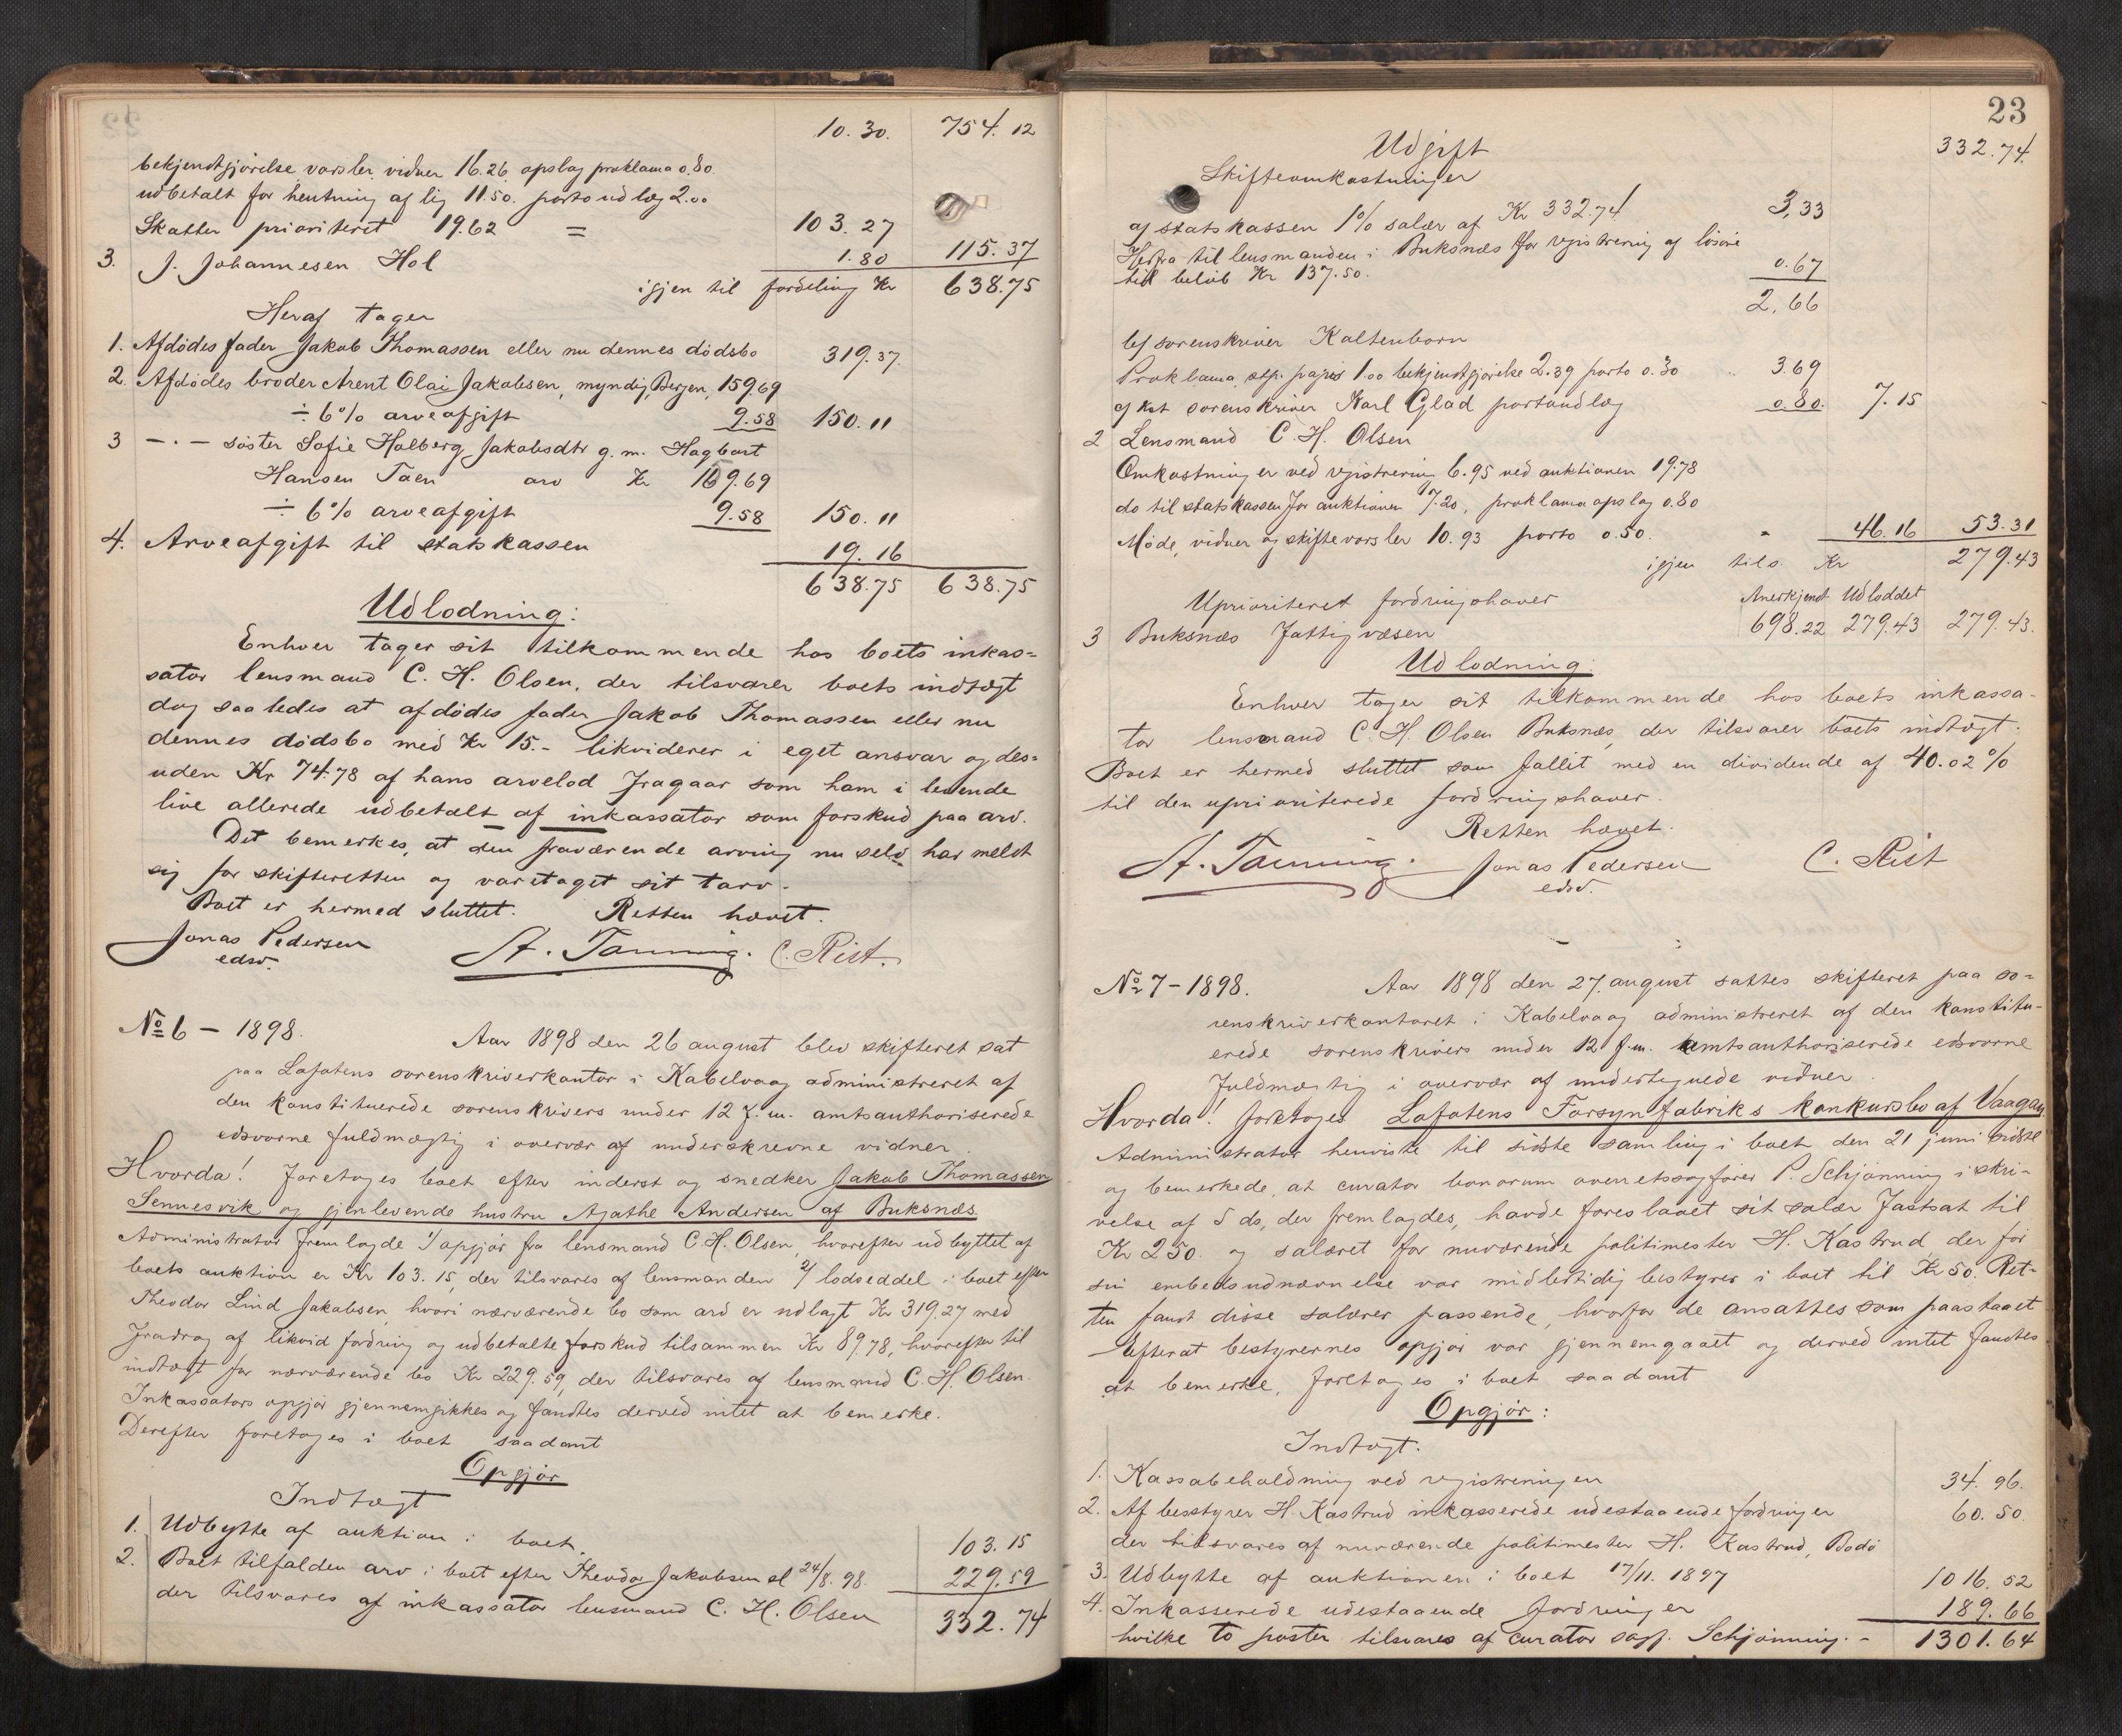 10.30. 754.12
bekjendtgjørelse varsler vidner 16.26 opslag proklama 0.80.
udbetalt for hentning af lig 11.50. porto udlæg 2.00
Skatter prioriteret 19.62 = 103.27
3. J. Johannesen Hol 1.80 115.37
igjen til fordeling Kr 638.75
Heraf tager
1. Afdødes fader Jakob Thomassen eller nu dennes dødsbo 319.37.
2. Afdødes broder Arent Olai Jakobsen, myndig, Bergen, 159.69
÷ 6% arveafgift 9.58 150.11
3 — · — søster Sofie Holberg Jakobsdtr g. m. Hagbart
Hansen Taen arv Kr 159.69
÷ 6% arveafgift 9.58 150.11
4. Arveafgift til statskassen 19.16
638.75 638.75
Udlodning:
Enhver tager sit tilkommende hos boets inkas=
sator lensmand C. H. Olsen, der tilsvarer boets indtægt
dog saaledes at afdødes fader Jakob Thomassen eller nu
dennes dødsbo med Kr 15.- likviderer i eget ansvar og des=
uden Kr 74.78 af hans arvelod fragaar som ham i levende
live allerede udbetalt af inkassator som forskud paa arv.
Det bemerkes, at den fraværende arving nu selv har meldt
sig for skifteretten og varetaget sit tarv.
Boet er hermed sluttet. Retten hævet.
Jonas Pedersen
edsv.
A. Tanning. C. Rist.
No 6 — 1898. Aar 1898 den 26 august blev skifteret sat
paa Lofotens sorenskriverkontor i Kabelvaag administreret af
den konstituerede sorenskrivers under 12 f. m. amtsauthoriserede
edsvorne fuldmægtig i overvær af underskrevne vidner.
Hvorda! Foretoges boet efter inderst og snedker Jakob Thomassen
Sennesvik og gjenlevende hustru Agathe Andersen af Buksnæs
Administrator fremlagde 1/ opgjør fra lensmand C. H. Olsen, hvorefter udbyttet af
boets auktion er Kr 103.15, der tilsvares af lensmanden 2/ lodseddel i boet efter
Theodor Lind Jakobsen, hvori nærværende bo som arv er udlagt Kr 319.27 med
Fradrag af likvid fordring og udbetalte forskud tilsammen Kr 89.78, hvorefter til
indtægt for nærværende bo Kr 229.59, der tilsvares af lensmand C. H. Olsen.
Inkassators opgjør gjennemgikkes og fandtes derved intet at bemerke.
Derefter foretoges i boet saadant
Opgjør
Indtægt
1. Udbytte af auktion i boet. 103.15
2. Boet tilfalden arv i boet efter Theodor Jakobsen sl 24/8. 98. 229.59
der tilsvares af inkassator lensmand C. H. Olsen 332.74
23
Udgift 332.74.
Skifteomkostninger
a/ statskassen 1% salær af Kr 332.74 3,33
Herfra til lensmanden i Buksnæs for registrering af løsøre
till beløb Kr 137.50. 0.67
2,66
b/ sorenskriver Kaltenborn
Proklama, stp. papir 1.00 bekjendtgjørelse 2.39 porto 0.30 " 3.69
c/ kst sorenskriver Karl Glad portoudlæg 0.80. 7.15
2 Lensmand C. H. Olsen
Omkostninger ved registrering 6.95 ved auktionen 19.78
do til statskassen for auktionen 7.20, proklama opslag 0.80
Møde, vidner og skiftevarsler 10.93 porto 0.50. " 46.16 53.31
igjen tils. Kr 279.43
Uprioriteret fordringshaver Anerkjendt Udloddet
3 Buksnæs Fattigvæsen 698.22 279.43 279.43.
Udlodning:
Enhver tager sit tilkommende hos boets inkassa-
tor lensmand C. H. Olsen Buksnæs, der tilsvarer boets indtægt.
Boet er hermed sluttet som fallit med en dividende af 40.02%
til den uprioriterede fordringshaver.
Retten hævet.
A. Tanning. Jonas Pedersen C. Rist
edsv.
No 7 – 1898. Aar 1898 den 27. august sattes skifteret paa so=
renskriverkontoret i Kabelvaag administreret af den konstitu-
erede sorenskrivers under 12 f. m. amtsauthoriserede edsvorne
fuldmægtig i overvær af undertegnede vidner.
Hvorda! foretoges Lofotens Forsyn fabriks konkursbo af Vaagan
Administrator henviste til sidste samling i boet den 21 juni sidstl
og bemerkede, at curator bonorum overretssagfører P. Schjønning i skri-
velse af 5 ds, der fremlagdes, havde foreslaaet sit salær fastsat til
Kr 250. og salæret for nuværende politimester H. Kastrud der før
sin embedsudnævnelse var midlertidig bestyrer i boet til Kr 50. Ret-
ten fandt disse salærer passende, hvorfor de ansattes som paastaaet
Efterat bestyrernes opgjør var gjennemgaaet og derved intet fandtes
at bemerke, foretoges i boet saadant
Opgjør:
Indtægt.
1. Kassabeholdning ved registreringen 34.96.
2. Af bestyrer H. Kastrud inkasserede udestaaende fordringer 60.50.
der tilsvares af nuværende politimester H. Kastrud, Bodø
3. Udbytte af auktionen i boet 17/11. 1897 1016.52
4. Inkasserede udestaaende fordringer 189.66
hvilke to poster tilsvares af curator sagf. Schjønning. – 1301.64